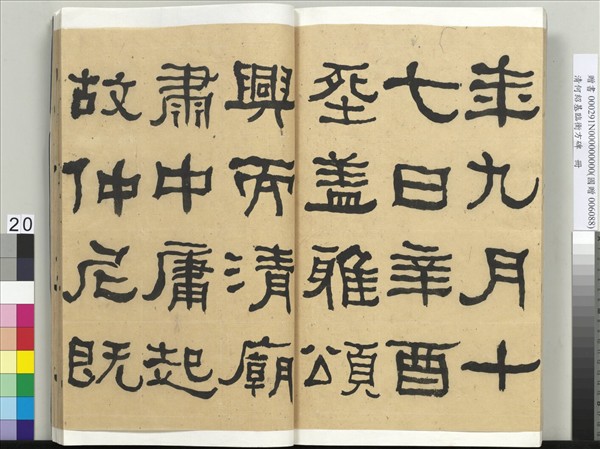 年九月十
七日辛酉
塟盖雅頌
興而清廟
肅中庸起
故仲尼既
贈書 000291N000000000(國贈 006088)
清何紹基臨衡方碑 冊
20